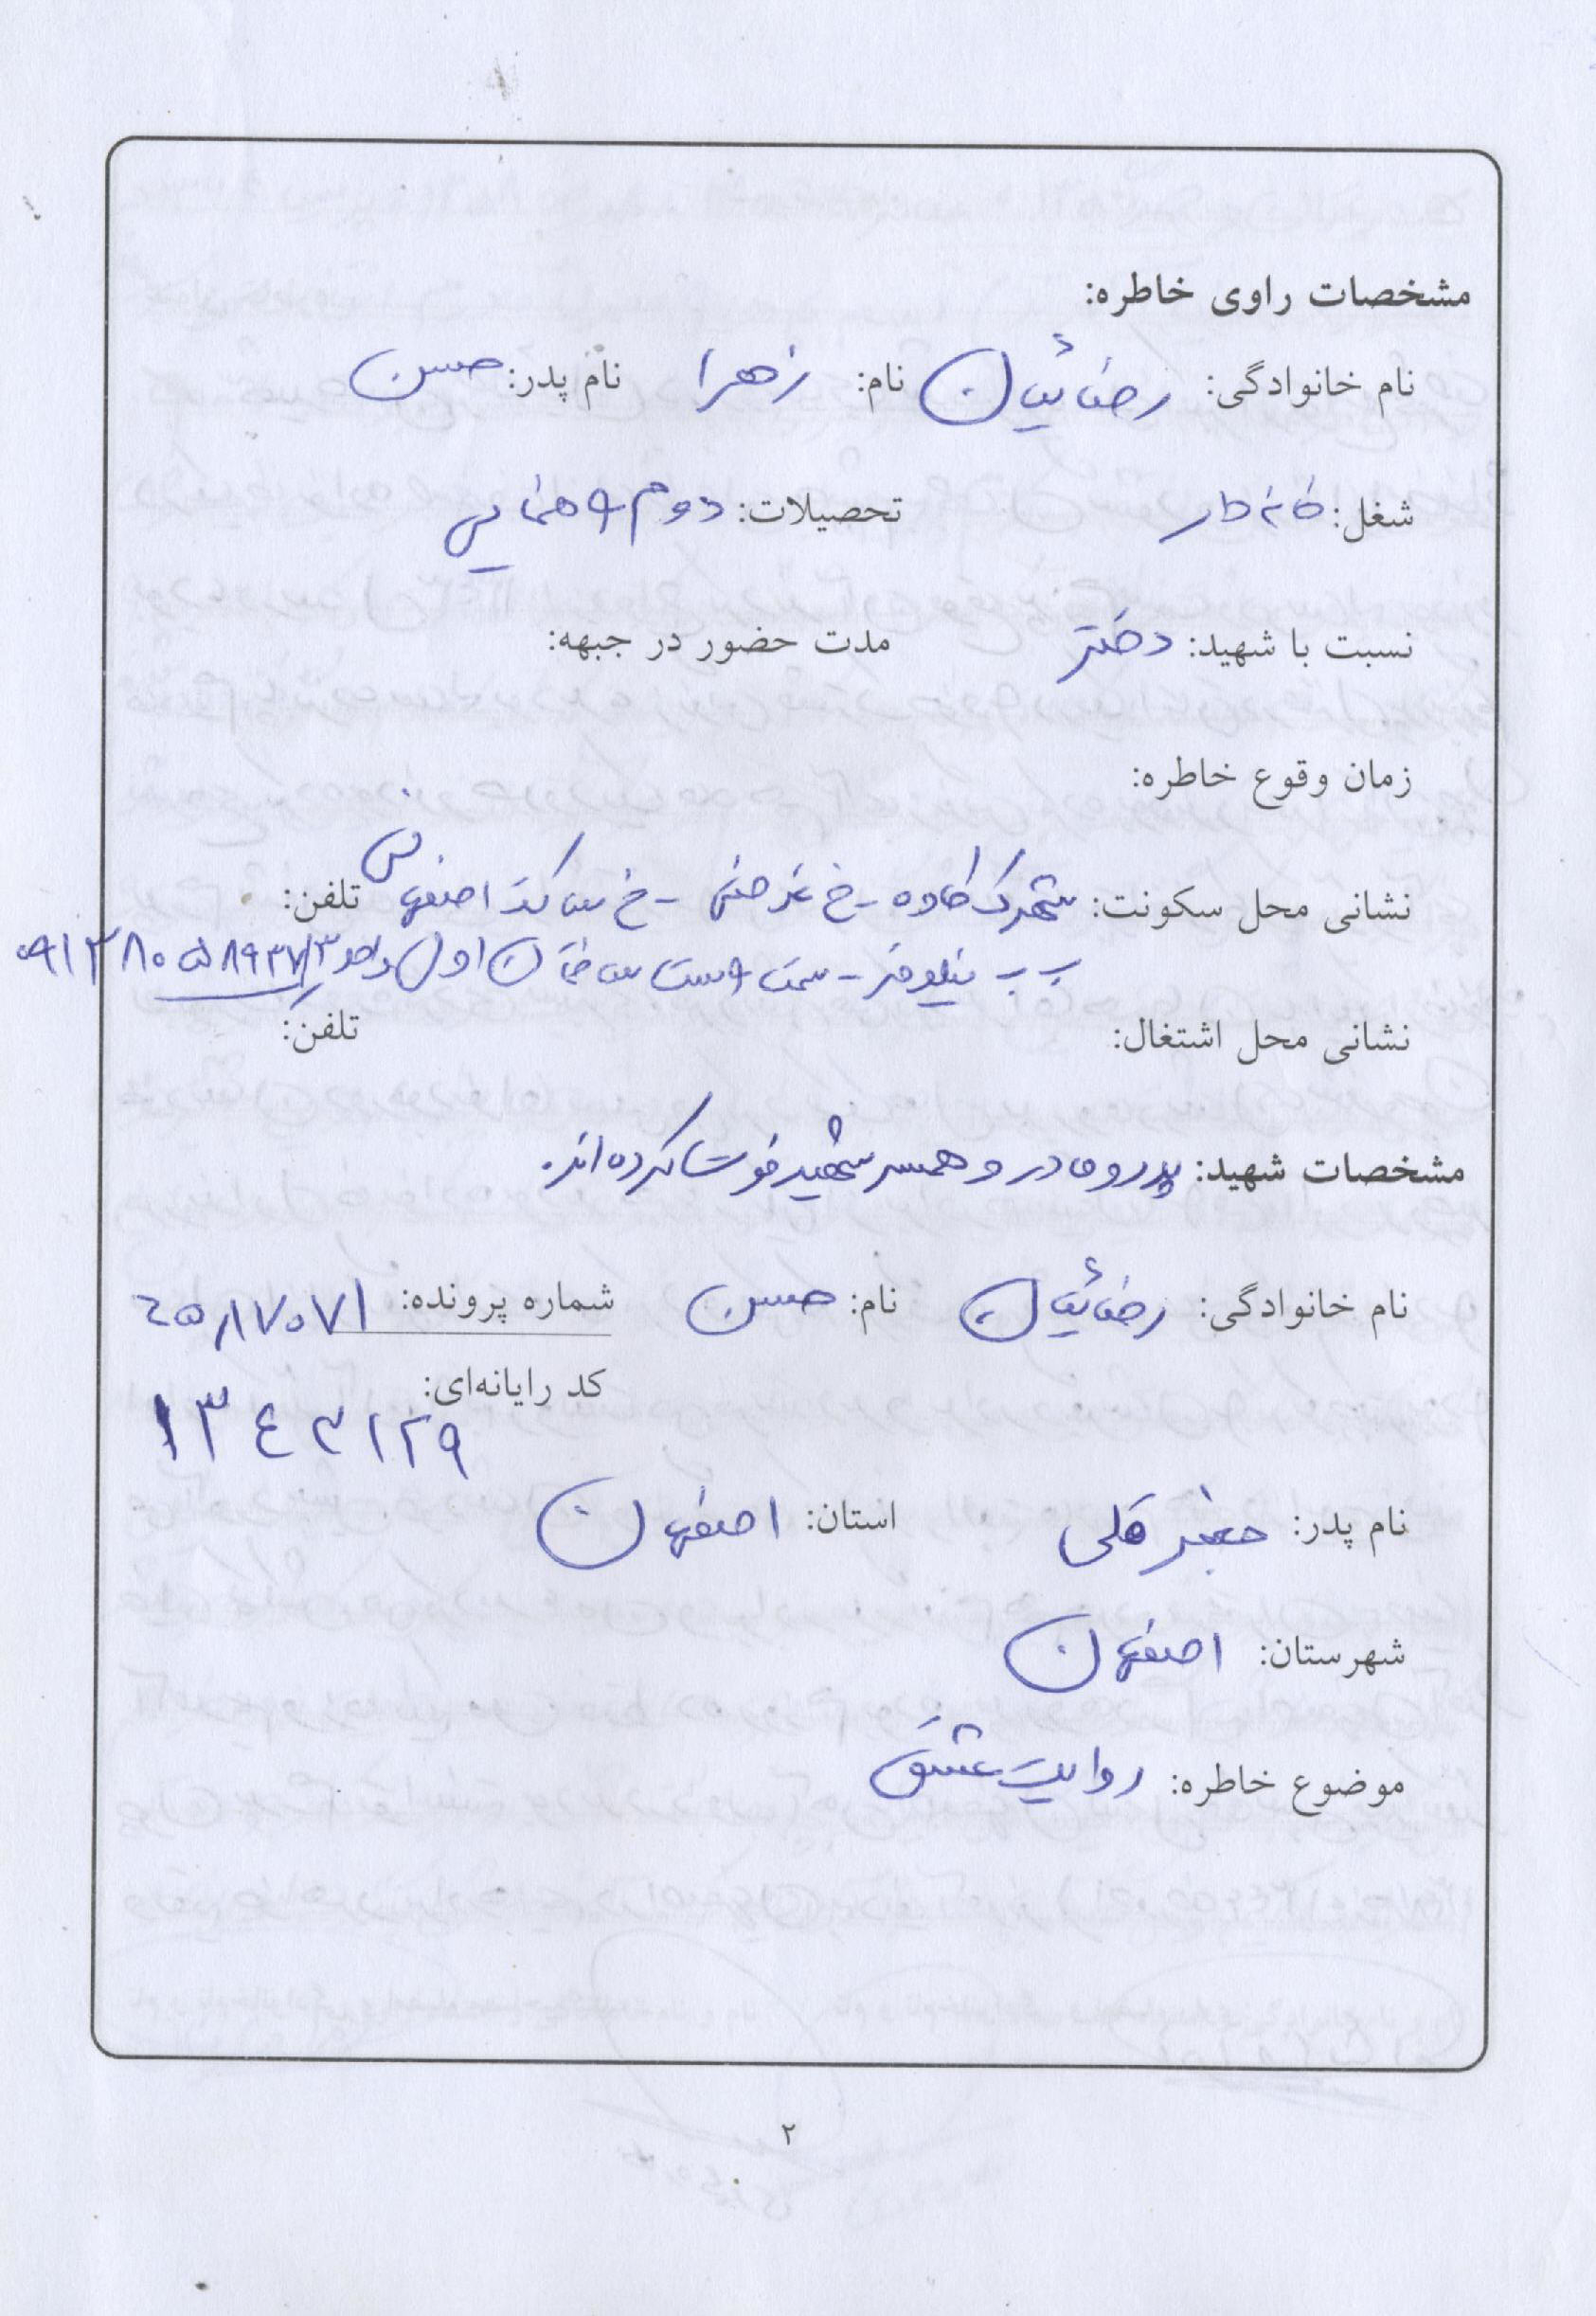 مشخصات راوی خاطره:
نام خانوادگی: رضائیان نام: زهرا نام پدر: حسن
شغل: خانه دار تحصیلات: دوم راهنمایی
نسبت با شهید: دختر مدت حضور در جبهه:
زمان وقوع خاطره:
نشانی محل سکونت: شهرک - خ غرضی - خ اصفهانی تلفن:
ب ب نیلوفر - سمت راست ساختمان اول واحد ۳
نشانی محل اشتغال: تلفن:
مشخصات شهید: پدر و مادر و همسر شهید فوت کرده اند.
نام خانوادگی: رضائیان نام: حسن شماره پرونده:
کد رایانه‌ای:
نام پدر: جعفرقلی استان: اصفهان
شهرستان: اصفهان
موضوع خاطره: روایت عشق
۲